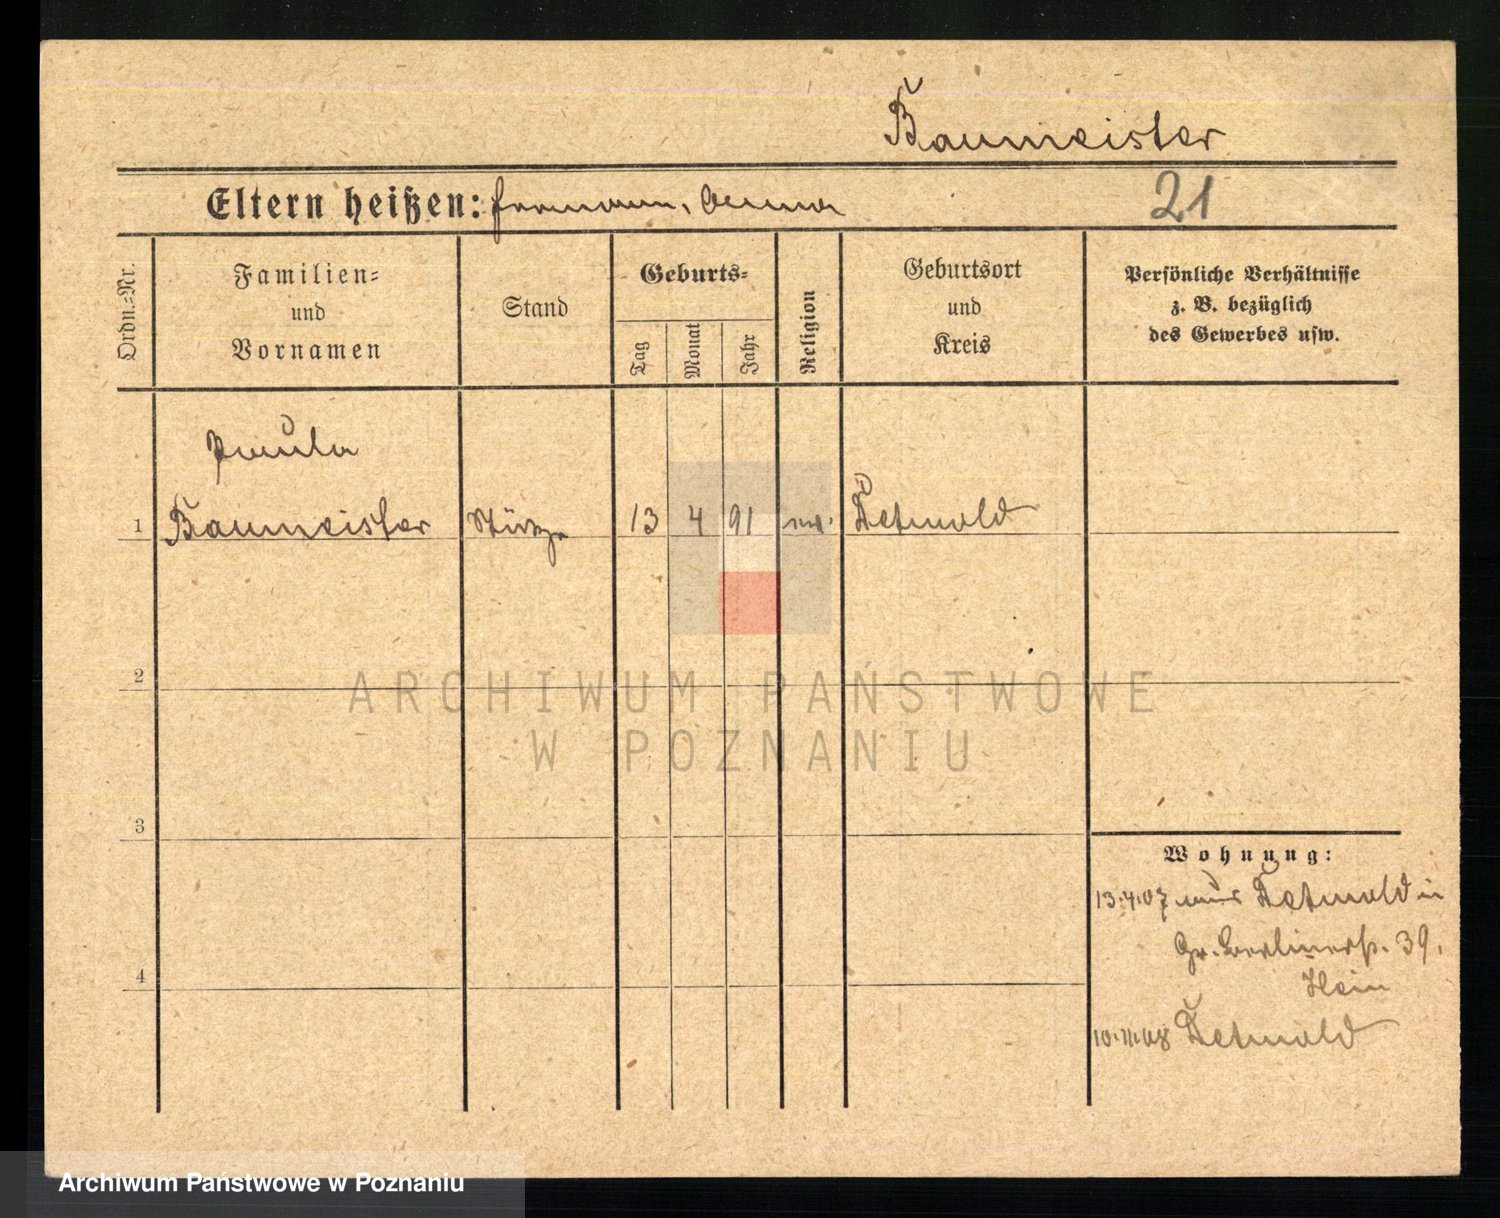 Baumeister
Eltern heißen: Hermann, Anna
21
Ordn.-Nr.
Familien-
und
Vornamen
Stand
Geburts-
Tag
Monat
Jahr
Religion
Geburtsort
und
Kreis
Persönliche Verhältnisse
z. B. bezüglich
des Gewerbes usw.
Paula
1 Baumeister Stütze 13 4 91 Detmold
2
ARCHIWUM PAŃSTWOWE
W POZNANIU
3
Wohnung:
13.4.07 aus Detmold in
Gr. Berlinerstr. 39,
Hein
4
10.11.08 Detmold
Archiwum Państwowe w Poznaniu